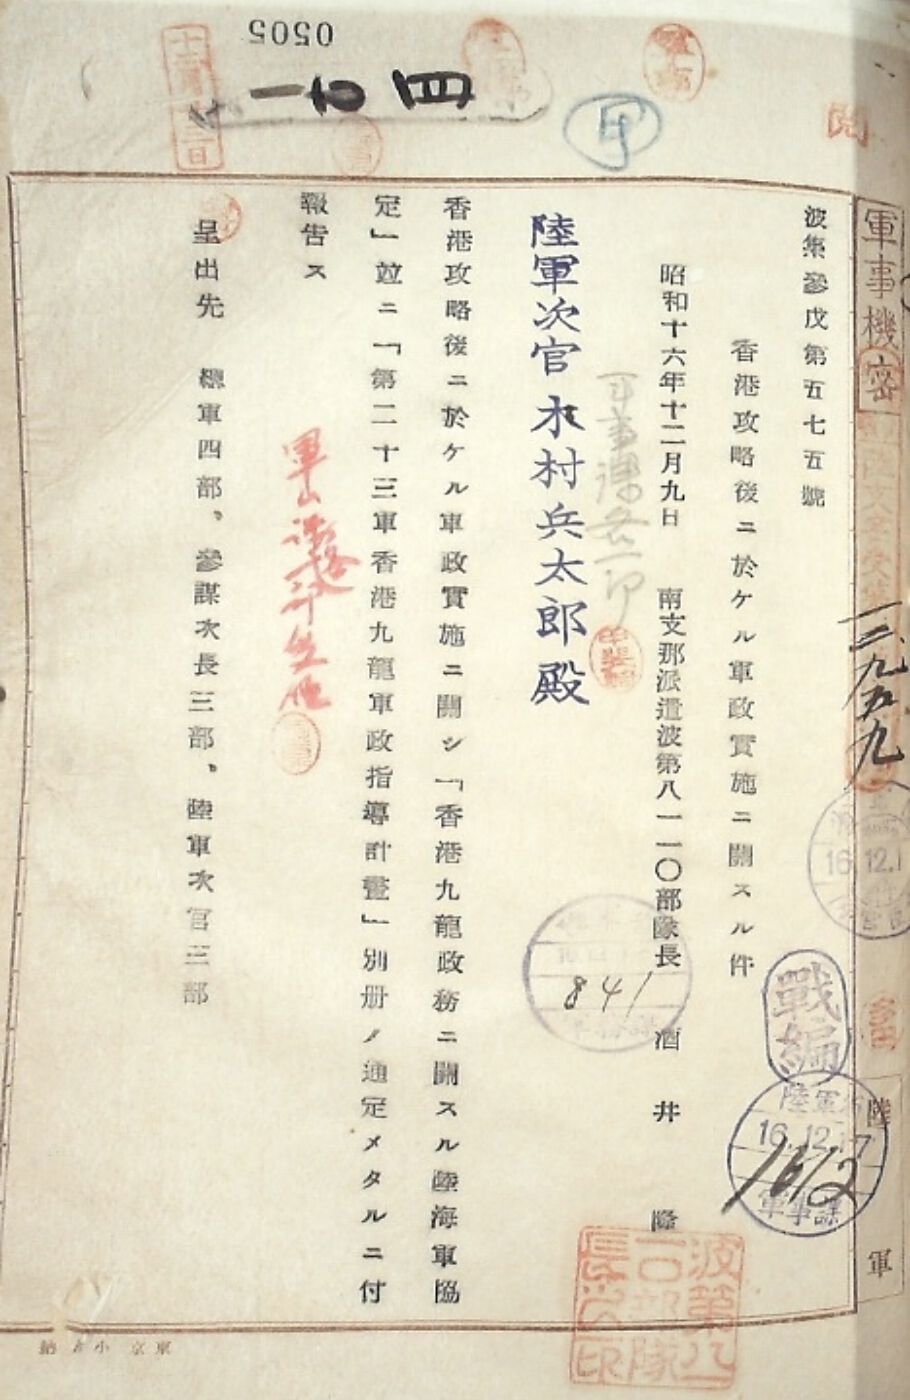 0505
一七四
軍事機密
波集參戊第五七五號
香港攻略後ニ於ケル軍政實施ニ關スル件
昭和十六年十二月九日　南支那派遣波第八一一〇部隊長　酒井　隆
陸軍次官木村兵太郎殿
香港攻略後ニ於ケル軍政實施ニ關シ「香港九龍政務ニ關スル陸海軍協
定」竝ニ「第二十三軍香港九龍軍政指導計畫」別册ノ通定メタルニ付
報告ス
呈出先　總軍四部、參謀次長三部、陸軍次官三部
841
戰編
陸軍省
16.12.17
1612
軍事課
九五九
16.12.1
波第八一一〇部隊長之印
陸軍
東京　小　納